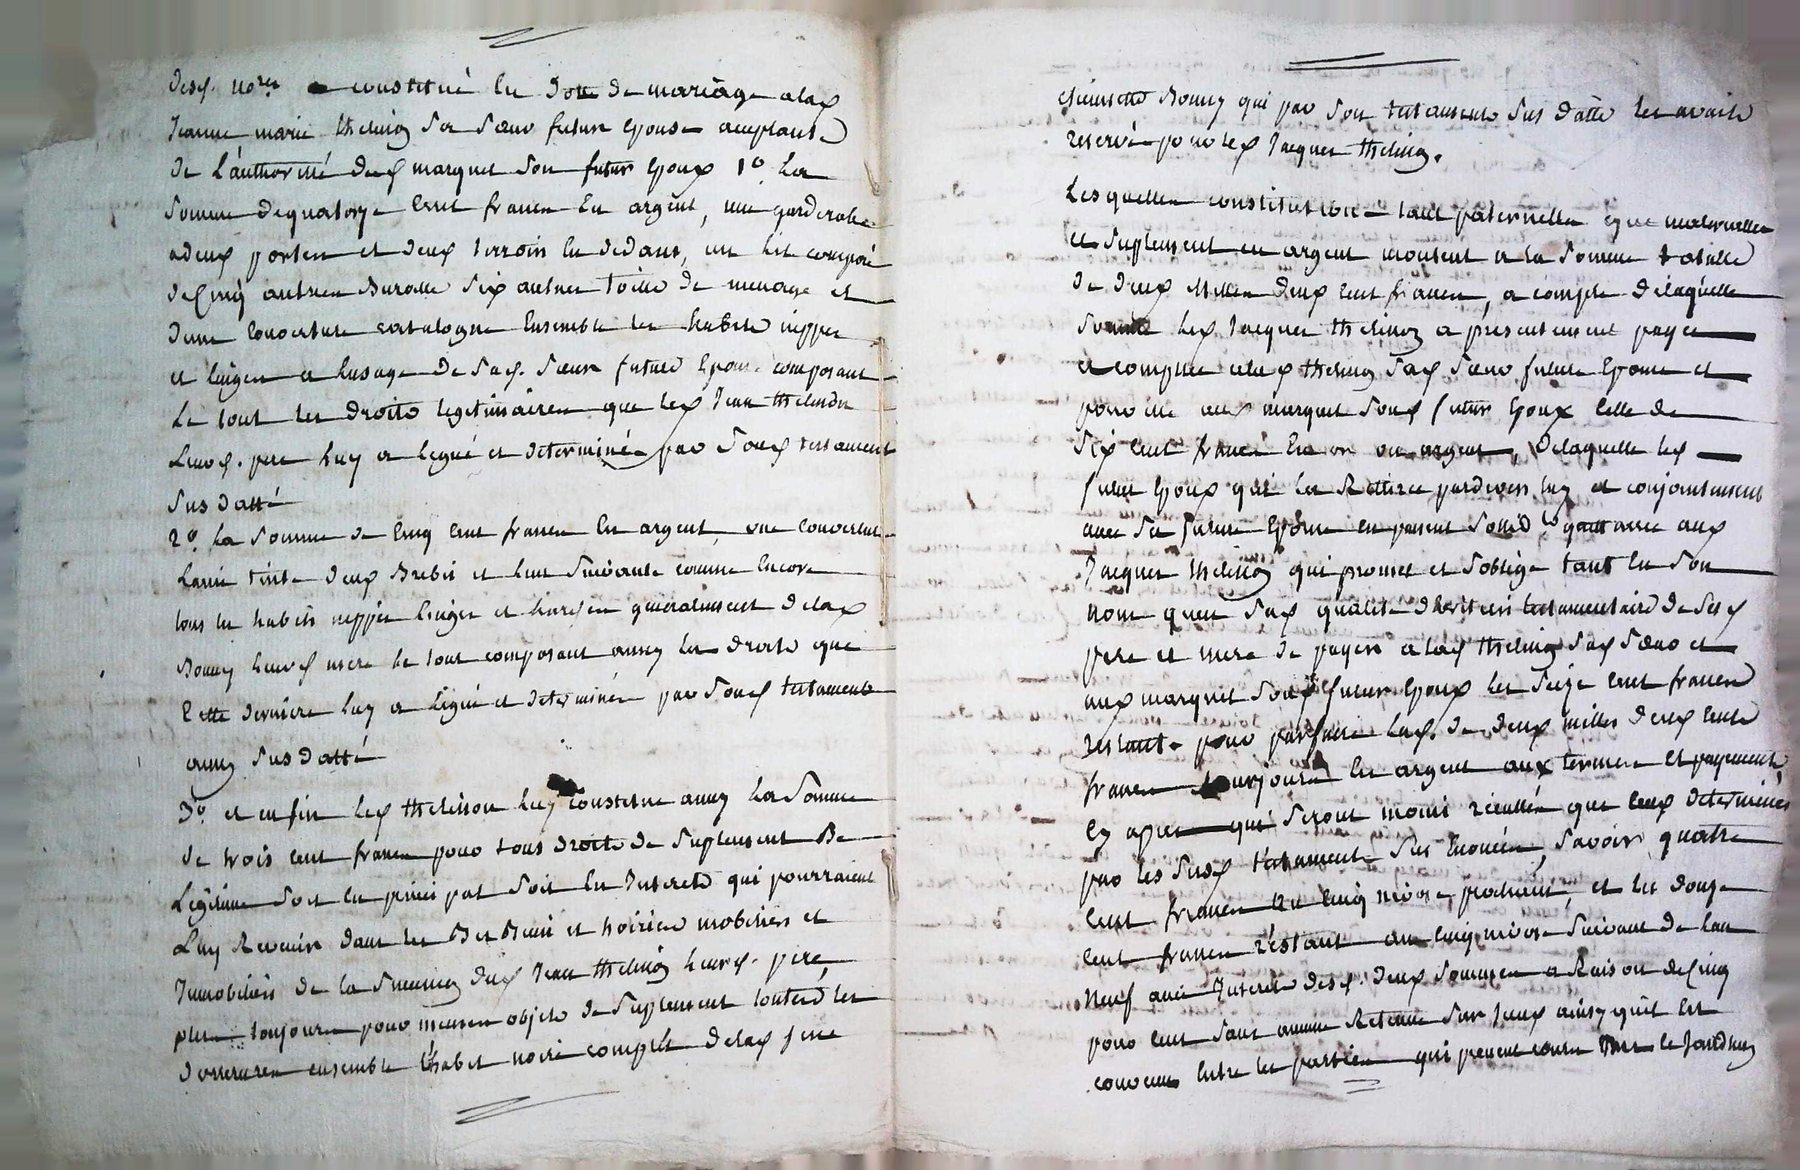 desd. no.res a constitué en dotte de mariage a lad.
Jeanne marie thelinon sa sœur future epouse acceptante
de L'authorité dud. marquet son futur Epoux 1o. La
somme de quatorze cent francs En argent, une garderobe
a deux portes et deux tirroirs En dedans, un lit composé
de Cinq autres six autres toille de menage et
d'une Couverture catalogne Ensemble les habits nippes
et linges a Lusage de sad. sœur future Epouse composant
Le tout les droits legitimaires que led. Jean
Leurd. pere Luy a legué et determinés par soud. testament
sus datté
2o. La somme de Cinq cent francs En argent, une couverture
Laine deux Brebis et leur suivante comme Encore
tous les habits nippes linges et generalement de lad.
Bonny leurd. mere le tout composant aussy les droits que
Cette derniere luy a légué et determinés par soud. testament
aussy sus datté
3o. et enfin led. thelinon luy constitue aussy La somme
de trois cent francs pour tous droits de suplement De
Légitime soit en principal soit En Interets qui pourraient
Luy Revenir dans les Biens et hoiries mobiliers et
Immobiliers de la dud. Jean thelinon leurd. pere,
plus toujours pour mesmes objets de suplement toutes les
ensemble L'habit noir complet de lad.
Bonny qui par son testament sus datté les avait
reservés pour led. Jacques thelinon.
Lesquelles constitutions tant paternelles que maternelles
et suplement en argent montent a la somme totalle
de deux Milles deux cent francs, a compte de laquelle
somme led. Jacques thelinon a presentement payé
et compté a lad. thelinon sad. sœur future Epouse et
pour elle aud. marquet soud. futur Epoux Celle de
six cent francs En or ou argent, De laquelle led.
futur Epoux qui les a Rettirée pardevers luy et conjointement
avec sa future Epouse en passent quittance aud.
Jacques thelinon qui promet et soblige tant En son
nom quen sad. qualité d'heritier testamentaire de sesd.
pere et mere de payer a lad. thelinon sad. sœur et
aud. marquet soud. futur Epoux les seize cent francs
restant pour parfaire lad. de deux milles deux cents
francs toujours En argent aux termes et payements
Cy apres qui seront moins réculés que Ceux determinés
par les susd. testaments sus Enoncés, savoir quatre
cent francs au Cinq nivose prochain, et les douze
cent francs réstant au Cinq nivose suivant de Lan
Neuf avec Interets desd. deux sommes a Raison de Cinq
pour cent sans aucune Retenue sur Iceux ainsy quil Est
convenu Entre les parties qui peuvent courir des le jourdhuy